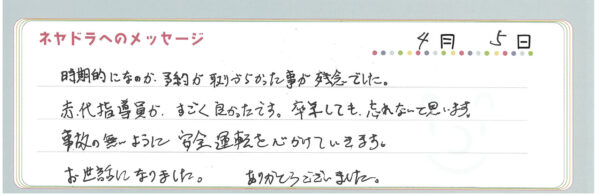 ネヤドラへのメッセージ 4月 5日
時期的になのか、予約が取りづらかった事が残念でした。
赤代指導員が、すごく良かったです。卒業しても、忘れないで思います。
事故の無いように安全運転を心がけていきます。
お世話になりました。 ありがとうございました。